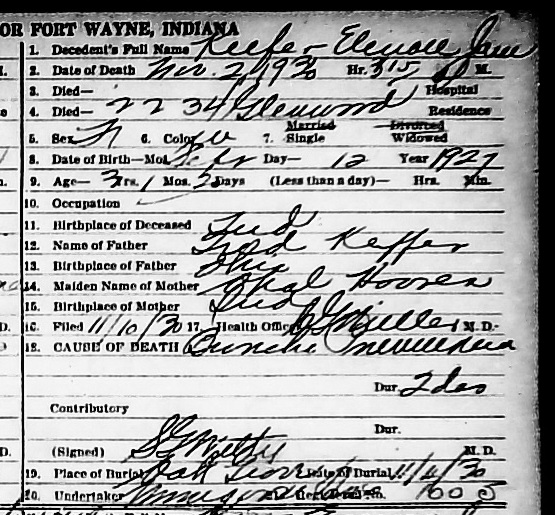 OR FORT WAYNE, INDIANA
1. Decedent's Full Name Keefer Elenore Jane
2. Date of Death Nov. 2, 1930 Hr. 315 M.
3. Died— Hospital
4. Died— 2234 Glenwood Residence
5. Sex 6. Color W 7. Married Single Divorced Widowed
8. Date of Birth—Mo. Sept Day— 12 Year 1927
9. Age— 3 Yrs. 1 Mos. Days (Less than a day)— Hrs. Min.
10. Occupation
11. Birthplace of Deceased Ind
12. Name of Father Fred Keffer
13. Birthplace of Father Ohio
14. Maiden Name of Mother Hoover
15. Birthplace of Mother Ind
16. Filed 11/10/30 17. Health Officer M. D.
18. CAUSE OF DEATH Broncho Pneumonia
Dur. 2 das
Contributory
Dur.
(Signed) M. D.
19. Place of Burial Oak Grove Date of Burial 11/4/30
20. Undertaker 1603